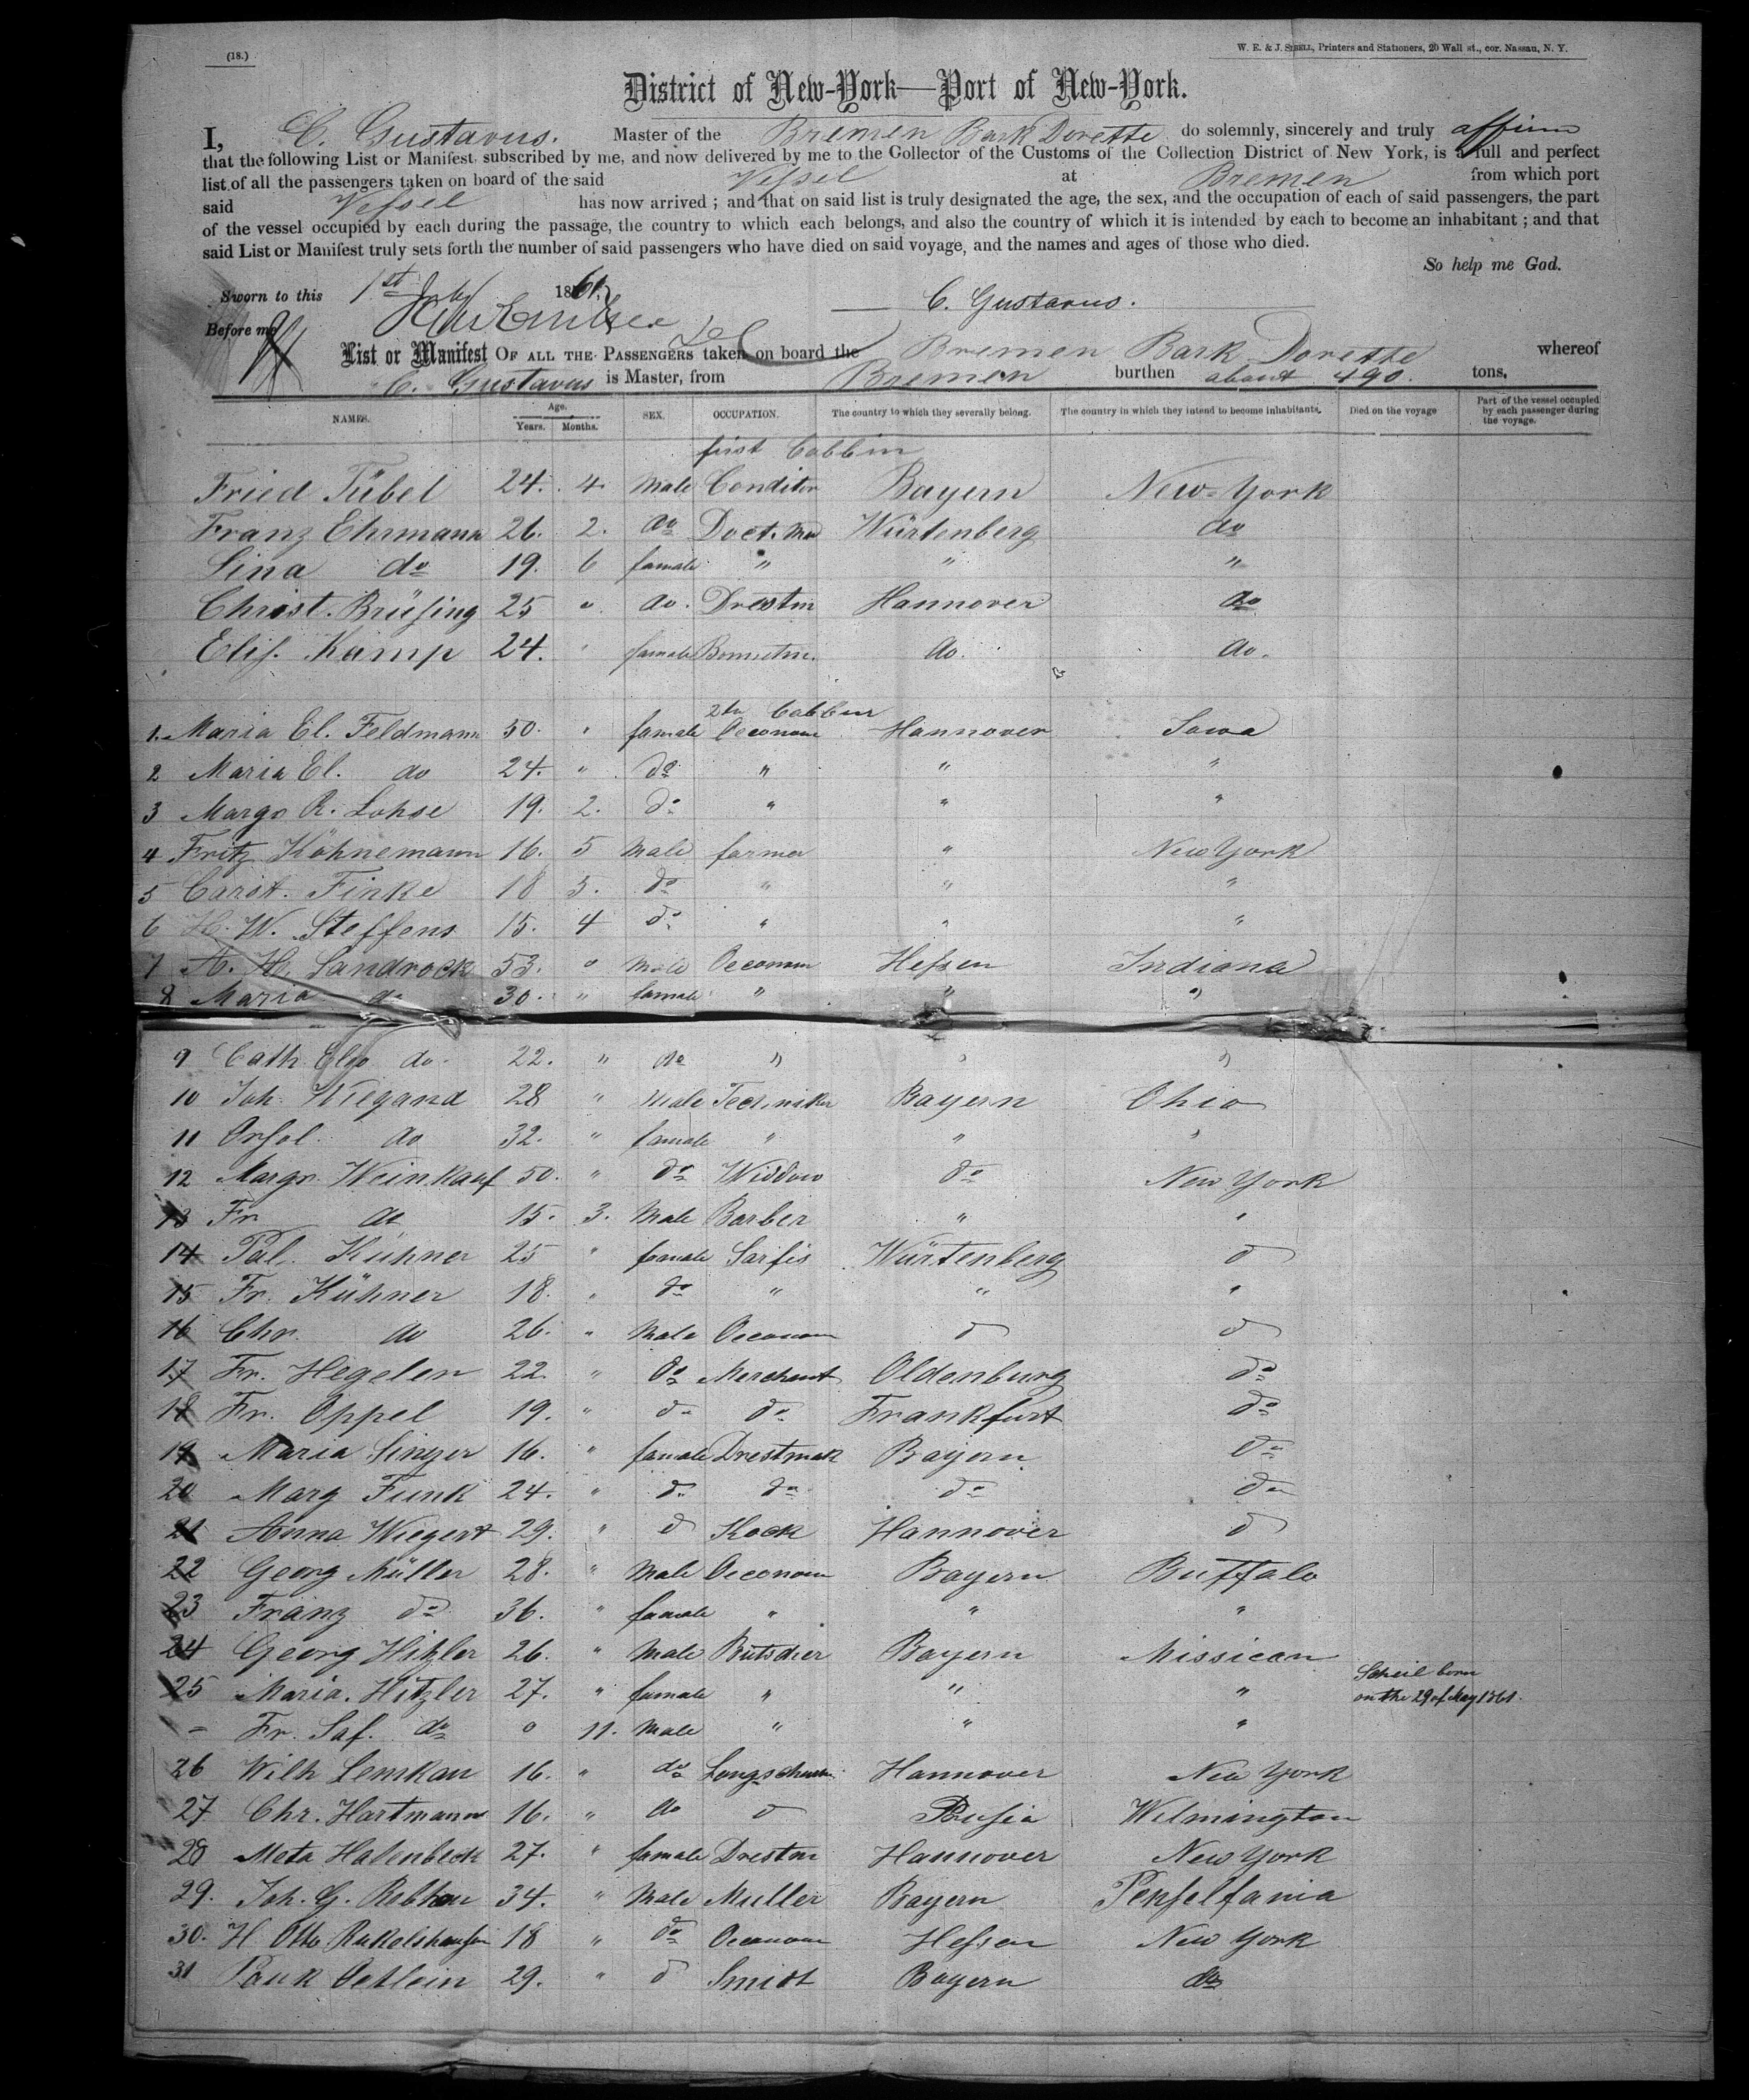 (18.)
W. E. & J. SIBELL, Printers and Stationers, 20 Wall st., cor. Nassau, N. Y.
District of New-York—Port of New-York.
I, C. Gustavus. Master of the Bremen Bark Dorette do solemnly, sincerely and truly affirm
that the following List or Manifest, subscribed by me, and now delivered by me to the Collector of the Customs of the Collection District of New York, is a full and perfect
list of all the passengers taken on board of the said Vessel at Bremen from which port
said Vessel has now arrived ; and that on said list is truly designated the age, the sex, and the occupation of each of said passengers, the part
of the vessel occupied by each during the passage, the country to which each belongs, and also the country of which it is intended by each to become an inhabitant ; and that
said List or Manifest truly sets forth the number of said passengers who have died on said voyage, and the names and ages of those who died.
So help me God.
Sworn to this 1st July 1861.
C. Gustavus.
Before me
List or Manifest OF ALL THE PASSENGERS taken on board the Bremen Bark Dorette whereof
C. Gustavus is Master, from Bremen burthen about 490. tons,
NAMES. Age. Years. Months. SEX. OCCUPATION. The country to which they severally belong. The country in which they intend to become inhabitants. Died on the voyage Part of the vessel occupied by each passenger during the voyage.
first Cabbin
Fried Tübel 24. 4. Male Conditor Bayern New-York
Franz Ehrmann 26. 2. do Doct. Med Würtenberg do
Lina do 19. 6 female " " "
Christ. Brüsing 25 " do. Drestm Hannover do
Elis. Kamp 24. " female Bonnetm. do. do.
2te Cabbin
1. Maria El. Feldmann 50. " female Oeconom Hannover Iowa
2 Maria El. do 24. " do " " "
3 Margr R. Lohse 19. 2. do " " "
4 Fritz Köhnemann 16. 5 Male farmer " New York
5 Carst. Finke 18 5. do " " "
6 H. W. Steffens 15. 4 do " " "
7 A. H. Sandrock 53. " Male Oeconom Hessen Indiana
8 Maria do 30. " female " " "
9 Cath Elis do. 22. " do " " "
10 Joh. Wiegand 28 " Male Techniker Bayern Ohio
11 Orsol. do 32. " female " " "
12 Margr. Weinkauf 50. " do Widdow do New York
13 Fr do 15. 3. Male Barber " "
14 Pal. Kühner 25 " female Würtenberg do
15 Fr. Kühner 18. " do " " "
16 Chr. do 26. " Male Oeconom do do
17 Fr. Hegeler 22. " do Merchant Oldenburg do
18 Fr. Oppel 19. " do do Frankfurt do
19 Maria Singer 16. " female Drestmak Bayern do
20 Marg Funk 24. " do do do do
21 Anna Wiegert 29. " do Kock Hannover do
22 Georg Müller 28. " Male Oeconom Bayern Buffalo
23 Franz do 36. " female " " "
24 Georg Hitzler 26. " Male Butscher Bayern Missican
25 Maria. Hitzler 27. " female " " " born
on the 29 of May 1861.
– Fr. Saf. do 0 11. Male " " "
26 Wilh Lemkau 16. " do Hannover New York
27 Chr. Hartmann 16. " do do Prusia Wilmington
28 Meta Halenbeck 27. " female Drestm Hannover New York
29. Joh. G. Rebhan 34. " Male Muller Bayern Penselfania
30. H Otto 18 " do Oeconom Hessen New York
31 Pauk Oetlein 29. " do Smidt Bayern do